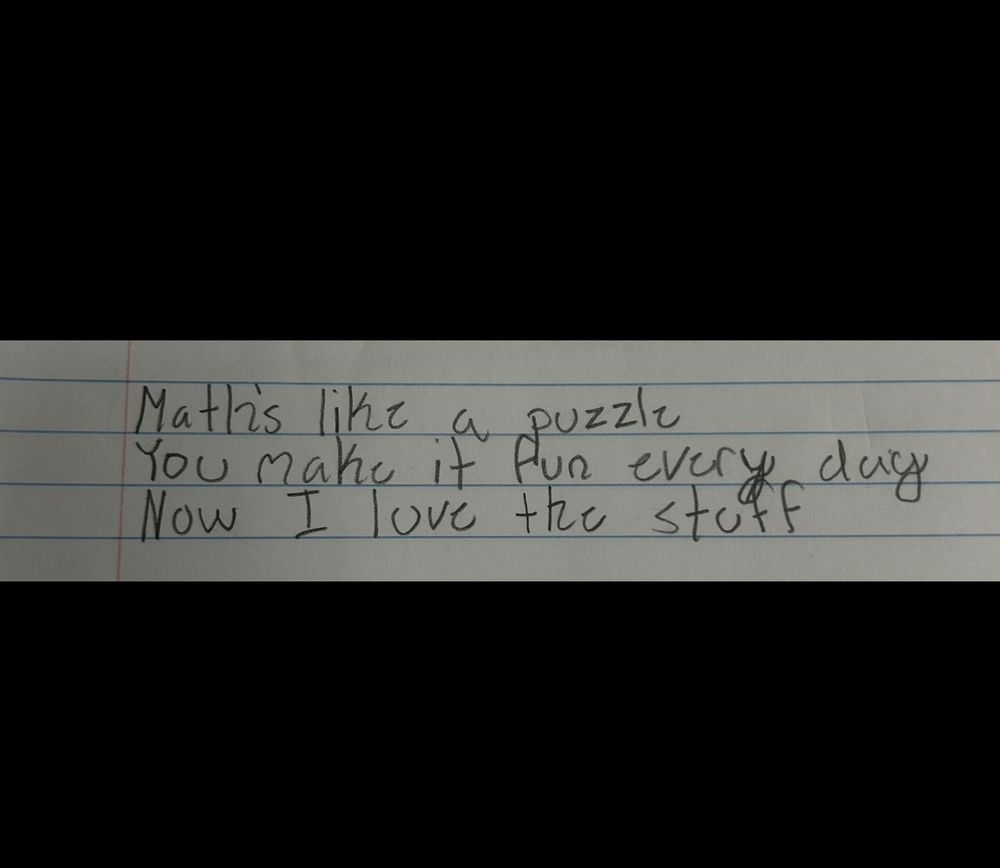 Math's like a puzzle
You make it fun every day
Now I love the stuff